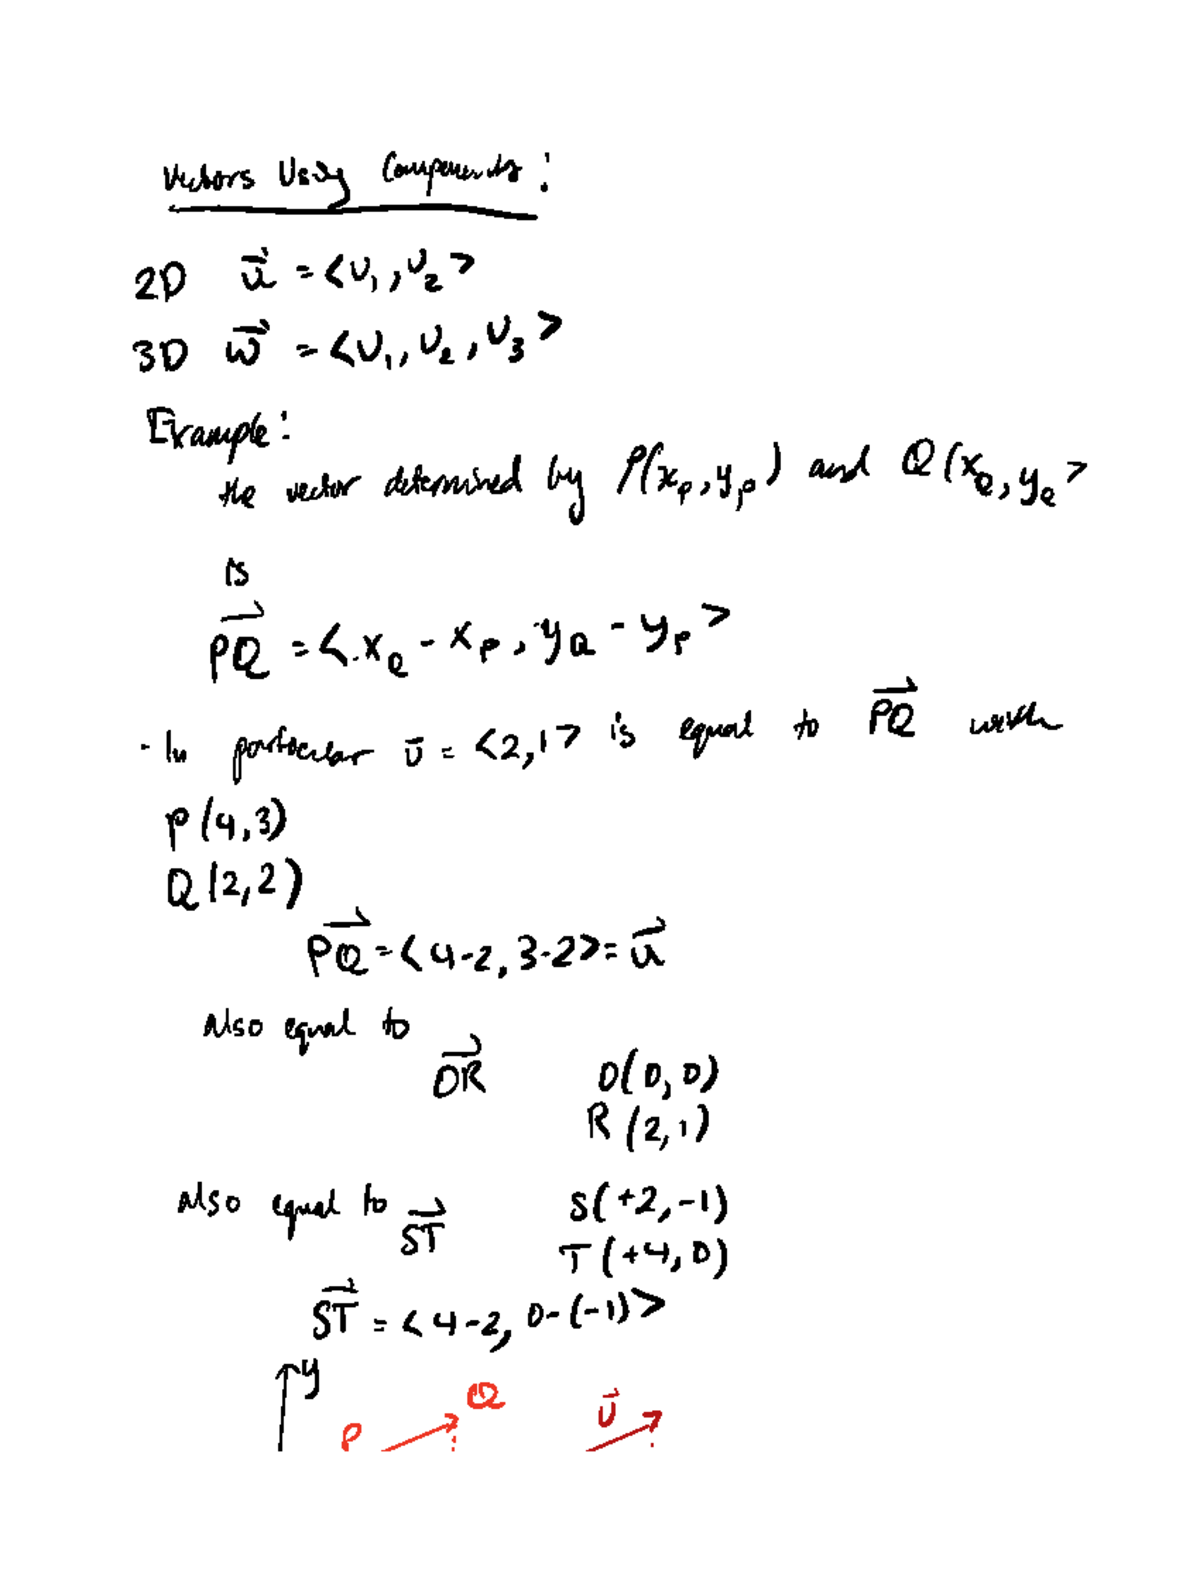 Vectors Using Components:
2D u⃗ = <u₁, u₂>
3D w⃗ = <u₁, u₂, u₃>
Example:
the vector determined by P(xₚ, yₚ) and Q(x_Q, y_Q>
is
PQ⃗ = <x_Q - xₚ, y_Q - yₚ>
- In particular u⃗ = <2,1> is equal to PQ⃗ with
P(4,3)
Q(2,2)
PQ⃗ = <4-2, 3-2> = u⃗
Also equal to
OR⃗ O(0,0)
R(2,1)
Also equal to ST⃗ S(+2,-1)
T(+4,0)
ST⃗ = <4-2, 0-(-1)>
y
P Q u⃗